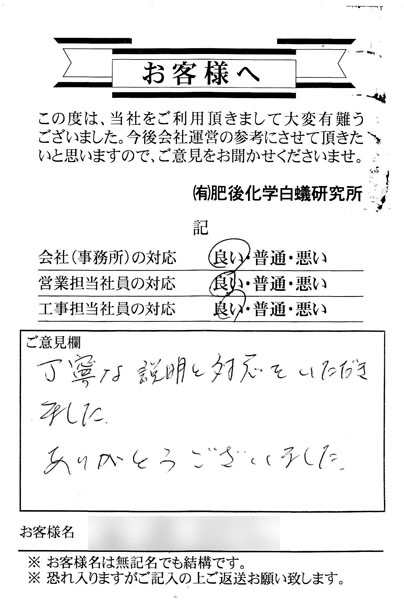 お客様へ
この度は、当社をご利用頂きまして大変有難う
ございました。今後会社運営の参考にさせて頂きた
いと思いますので、ご意見をお聞かせくださいませ。
㈲肥後化学白蟻研究所
記
会社(事務所)の対応 良い・普通・悪い
営業担当社員の対応 良い・普通・悪い
工事担当社員の対応 良い・普通・悪い
ご意見欄
丁寧な説明と対応をいただき
ました。
ありがとうございました。
お客様名
※ お客様名は無記名でも結構です。
※ 恐れ入りますがご記入の上ご返送お願い致します。